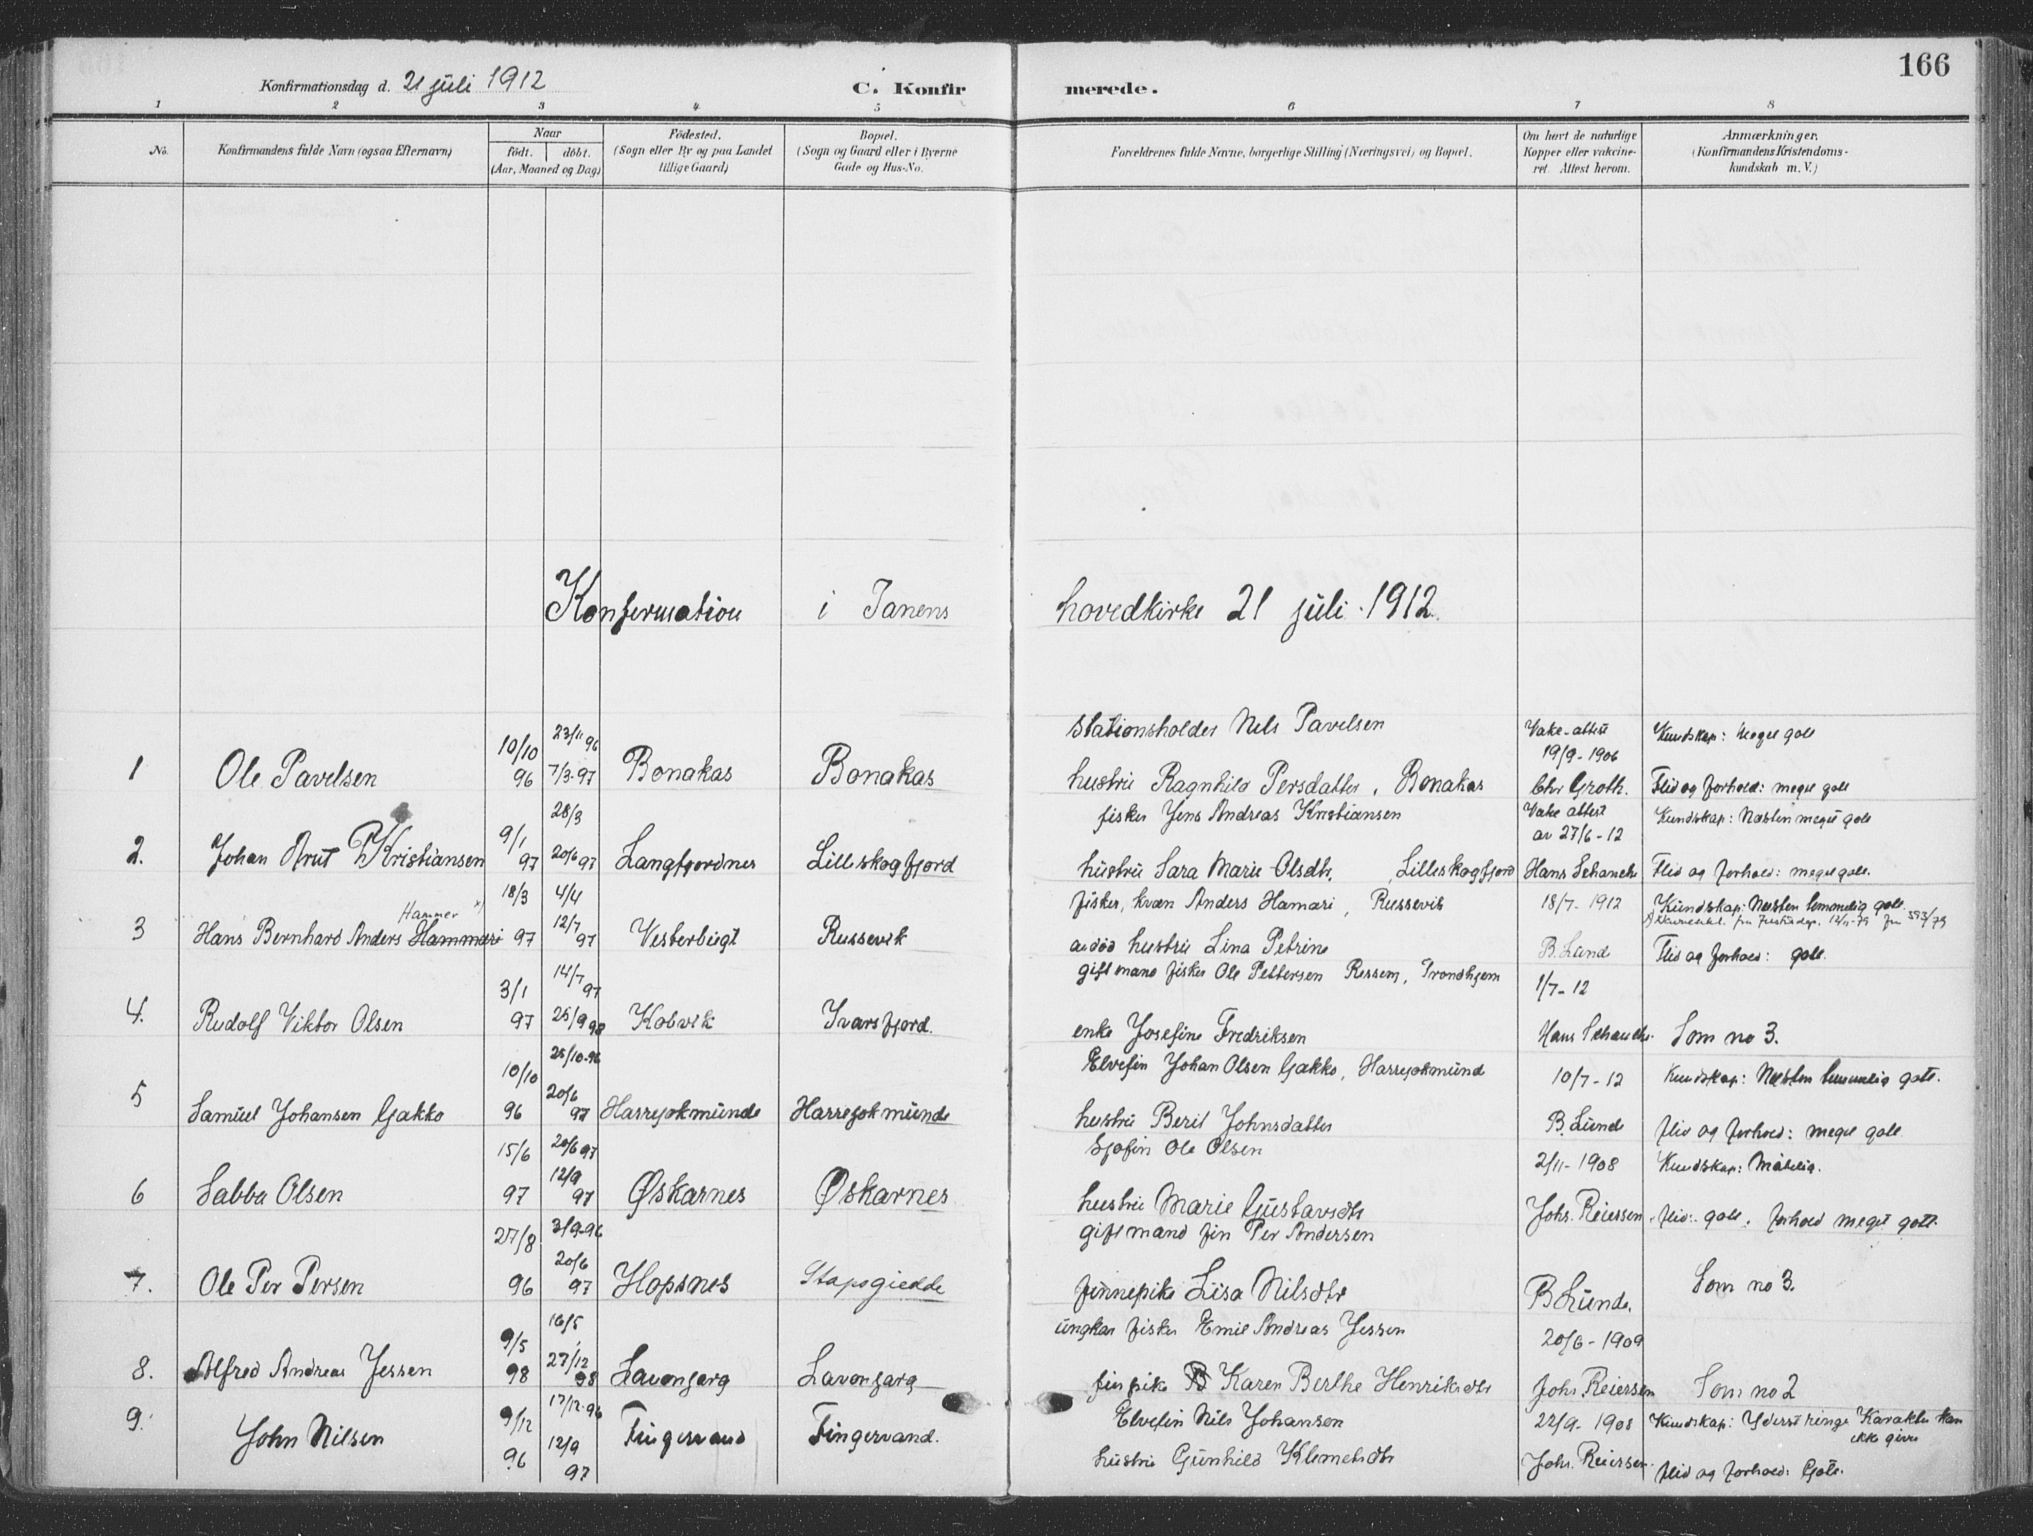 166
Konfirmationsdag d. 21 juli 1912
C. Konfirmerede.
1 2 3 4 5 6 7 8
No.
Konfirmandens fulde Navn (ogsaa Efternavn)
Naar
födt. döbt.
(Aar, Maaned og Dag)
Födested.
(Sogn eller By og paa Landet
tillige Gaard)
Bopæl.
(Sogn og Gaard eller i Byerne
Gade og Hus-No.
Forældrenes fulde Navne, borgerlige Stilling (Næringsvei) og Bopæl.
Om havt de naturlige
Kopper eller vakcine-
ret. Attest herom.
Anmærkninger.
(Konfirmandens Kristendoms-
kundskab m. V.)
Konfirmation i Tanens hovedkirke 21 juli 1912.
23/11 96 stationsholder Nils Pavelsen Vakc. attest Kundskap: Meget godt
1 Ole Pavelsen 10/10 96 7/3-97 Bonakas Bonakas hustru Ragnhild Persdatter, Bonakas 19/9-1906 Chr Groth. Flid og forhold: meget godt
28/3 fisker Jens Andreas Kristiansen Vakc attest av 27/6-12 Kundskap: Næsten meget godt
2. Johan Arut Kristiansen 9/1 97 20/6 97 Langfjordnes Lilleskogfjord hustru Sara Marie Olsdtr. Lilleskogfjord Hans Schanche Flid og forhold: meget godt.
18/3 4/4 fisker, kvæn Anders Hamari, Russevik 18/7-1912 Kundskap: Næsten temmelig godt
Hammer x) 12/11-79 593/79
3 Hans Bernhard Anders Hammari 97 12/7 97 Vesterbugt Russevik avdød hustru Lina Petrine B. Lund Flid og forhold: godt.
14/7 97 gift mand fisker Ole Pettersen Ressem, Trondhjem 1/7-12
4. Rudolf Viktor Olsen 3/1 97 25/9 98 Kobvik Ivarsfjord. enke Josefine Fredriksen Hans Schanche Som no 3.
10/10 25/10-96 Elvefin Johan Olsen Gakko, Harrejokmunde 10/7-12 Kundskap: Næsten temmelig godt.
5 Samuel Johansen Gakko 96 20/6 97 Harrejokmunde Harrejokmunde hustru Berit Johnsdatter B. Lund flid og forhold: meget godt
15/6 20/6 97 Sjøfin Ole Olsen 2/11-1908 Kundskap: Måtelig.
6 Sabba Olsen 97 12/9 97 Øskarnes Øskarnes hustru Marie Gustavsdtr Johs. Reiersen flid: godt. forhold meget godt
27/8 3/9-96 gift mand fin Per Andersen
7. Ole Per Persen 96 20/6 97 Hopsnes Stapogiedde finnepike Lisa Nilsdtr B Lund. Som no 3.
16/5 ungkar fisker Emil Andreas Jessen 20/6-1909
8. Alfred Andreas Jessen 9/5 98 27/12 98 Lavonjarg Lavonjarg finpike Karen Berthe Henriksdtr Johs. Reiersen Som no 2
17/12-96 Elvefin Nils Johansen 22/9-1908 Kundskap: Yderst ringe Karakter kan
ikke gives
9. John Nilsen 9/12 96 12/9 97 Fingervand Fingervand. hustru Gunhild Klemetsdtr Johs. Reiersen flid og forhold: Godt.